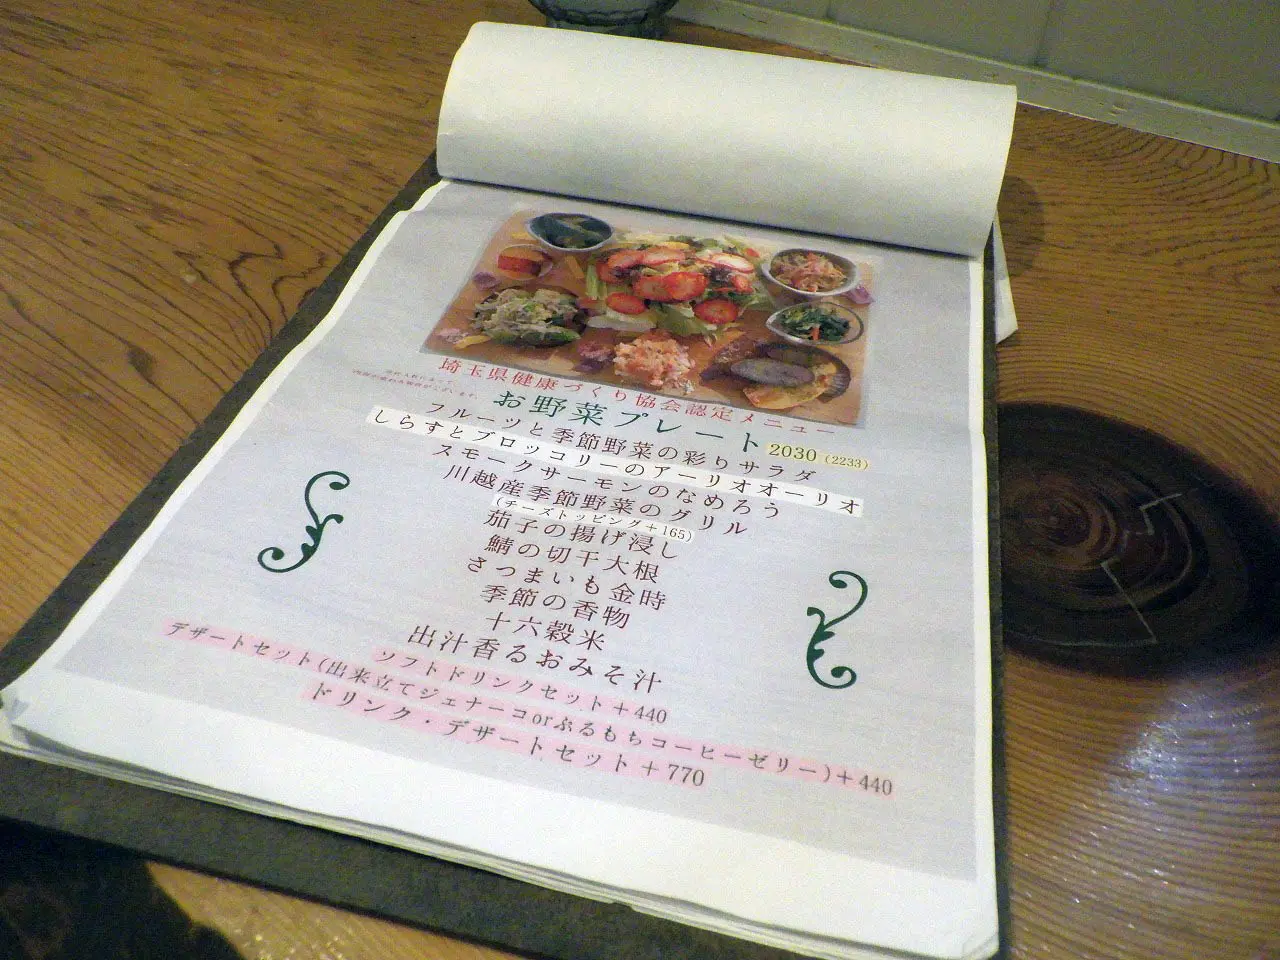 埼玉県健康づくり協会認定メニュー
お野菜プレート 2030 (2233)
フルーツと季節野菜の彩りサラダ
しらすとブロッコリーのアーリオオーリオ
スモークサーモンのなめろう
川越産季節野菜のグリル
(チーズトッピング+165)
茄子の揚げ浸し
鯖の切干大根
さつまいも金時
季節の香物
十六穀米
出汁香るおみそ汁
ソフトドリンクセット+440
デザートセット(出来立てジェナーコorぷるもちコーヒーゼリー)+440
ドリンク・デザートセット+770